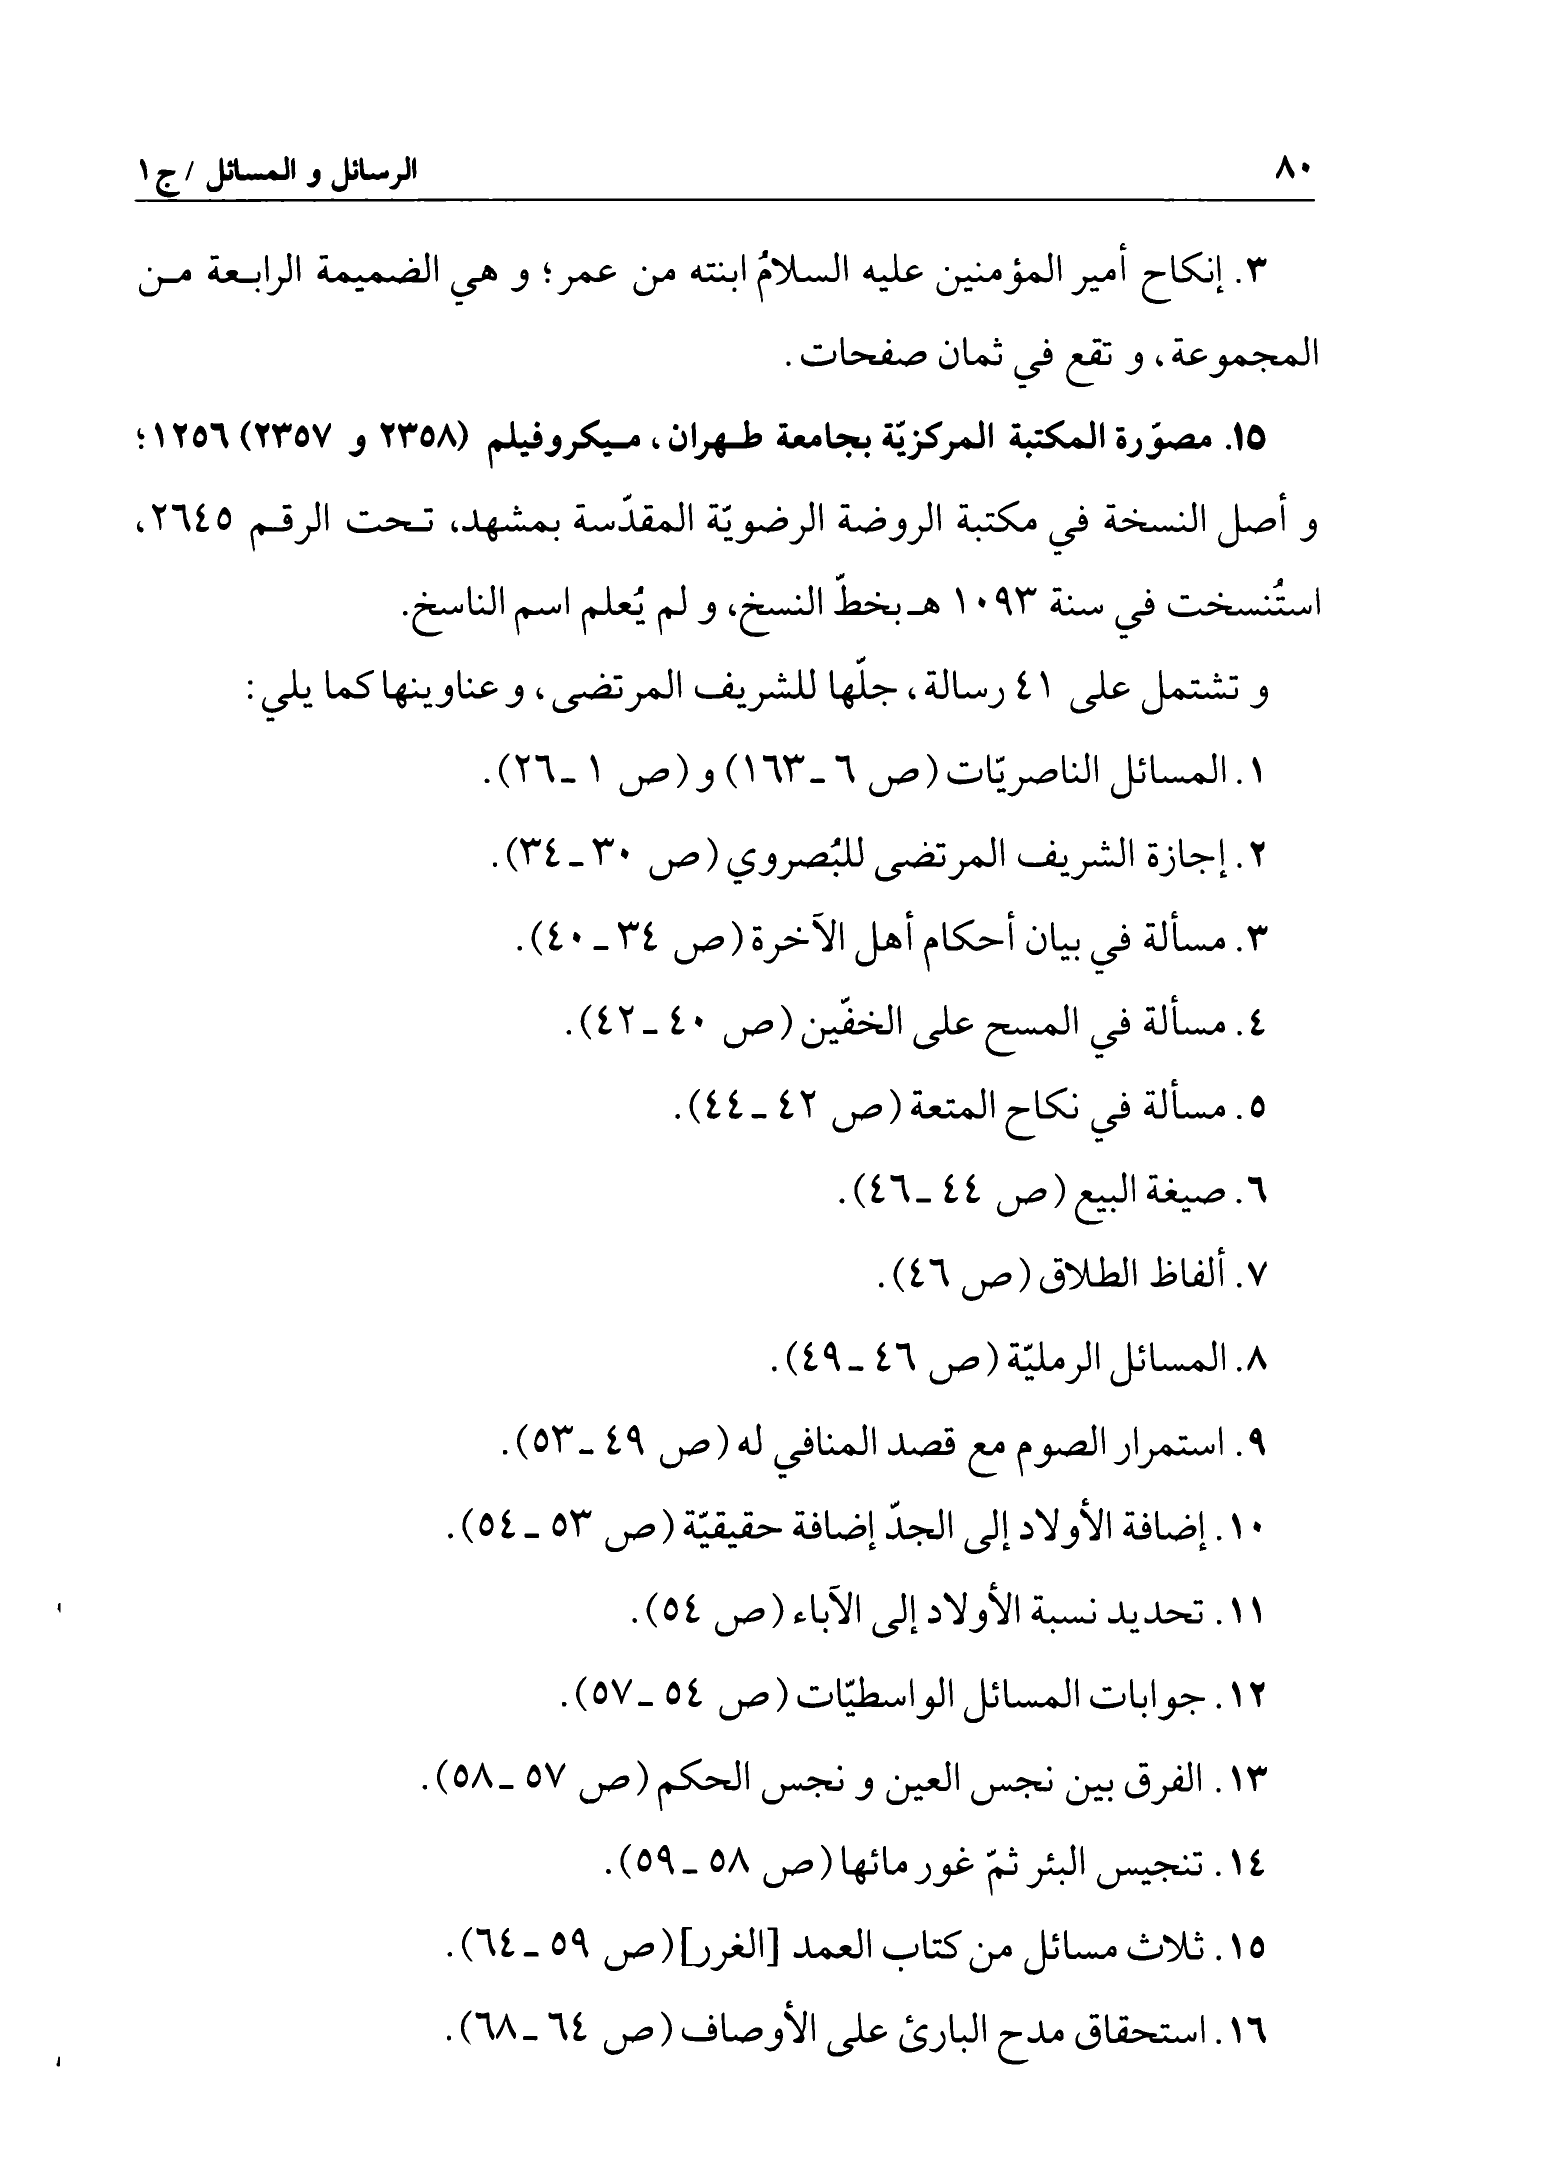 ٨٠
الرسائل و المسائل / ج١
٣. إنكاح أمير المؤمنين عليه السلامُ ابنته من عمر؛ و هي الضميمة الرابعة من
المجموعة، و تقع في ثمان صفحات.
١٥. مصوّرة المكتبة المركزيّة بجامعة طهران، ميكروفيلم (٢٣٥٨ و ٢٣٥٧) ١٢٥٦؛
و أصل النسخة في مكتبة الروضة الرضويّة المقدّسة بمشهد، تحت الرقم ٢٦٤٥،
استُنسخت في سنة ١٠٩٣ هـ بخطّ النسخ، و لم يُعلم اسم الناسخ.
و تشتمل على ٤١ رسالة، جلّها للشريف المرتضى، و عناوينها كما يلي:
١. المسائل الناصريّات (ص ٦ ـ ١٦٣) و (ص ١ ـ ٢٦).
٢. إجازة الشريف المرتضى للبُصروي (ص ٣٠ ـ ٣٤).
٣. مسألة في بيان أحكام أهل الآخرة (ص ٣٤ ـ ٤٠).
٤. مسألة في المسح على الخفّين (ص ٤٠ ـ ٤٢).
٥. مسألة في نكاح المتعة (ص ٤٢ ـ ٤٤).
٦. صيغة البيع (ص ٤٤ ـ ٤٦).
٧. ألفاظ الطلاق (ص ٤٦).
٨. المسائل الرمليّة (ص ٤٦ ـ ٤٩).
٩. استمرار الصوم مع قصد المنافي له (ص ٤٩ ـ ٥٣).
١٠. إضافة الأولاد إلى الجدّ إضافة حقيقيّة (ص ٥٣ ـ ٥٤).
١١. تحديد نسبة الأولاد إلى الآباء (ص ٥٤).
١٢. جوابات المسائل الواسطيّات (ص ٥٤ ـ ٥٧).
١٣. الفرق بين نجس العين و نجس الحكم (ص ٥٧ ـ ٥٨).
١٤. تنجيس البئر ثمّ غور مائها (ص ٥٨ ـ ٥٩).
١٥. ثلاث مسائل من كتاب العمد [الغرر] (ص ٥٩ ـ ٦٤).
١٦. استحقاق مدح البارئ على الأوصاف (ص ٦٤ ـ ٦٨).